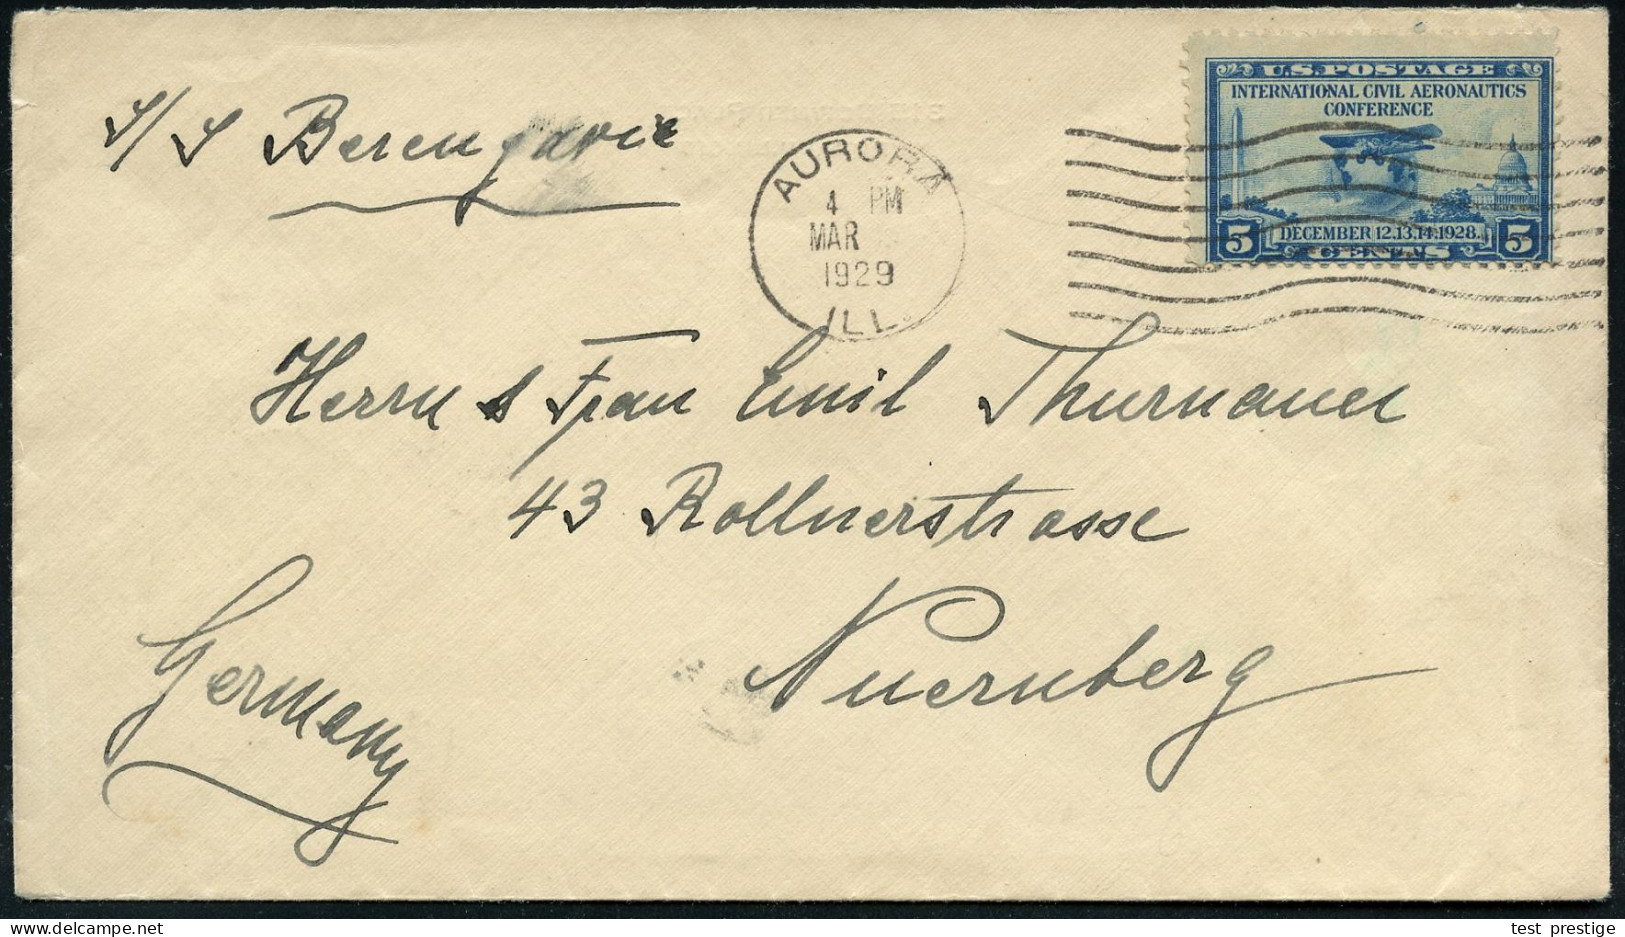 S/S Berengaria
AURORA
4 PM
MAR
1929
ILL.
U.S. POSTAGE
INTERNATIONAL CIVIL AERONAUTICS
CONFERENCE
DECEMBER 12.13.14.1928.
5 CENTS 5
Herrn & Frau Emil Thurnauer
43 Rollnerstrasse
Nuernberg
Germany
test prestige